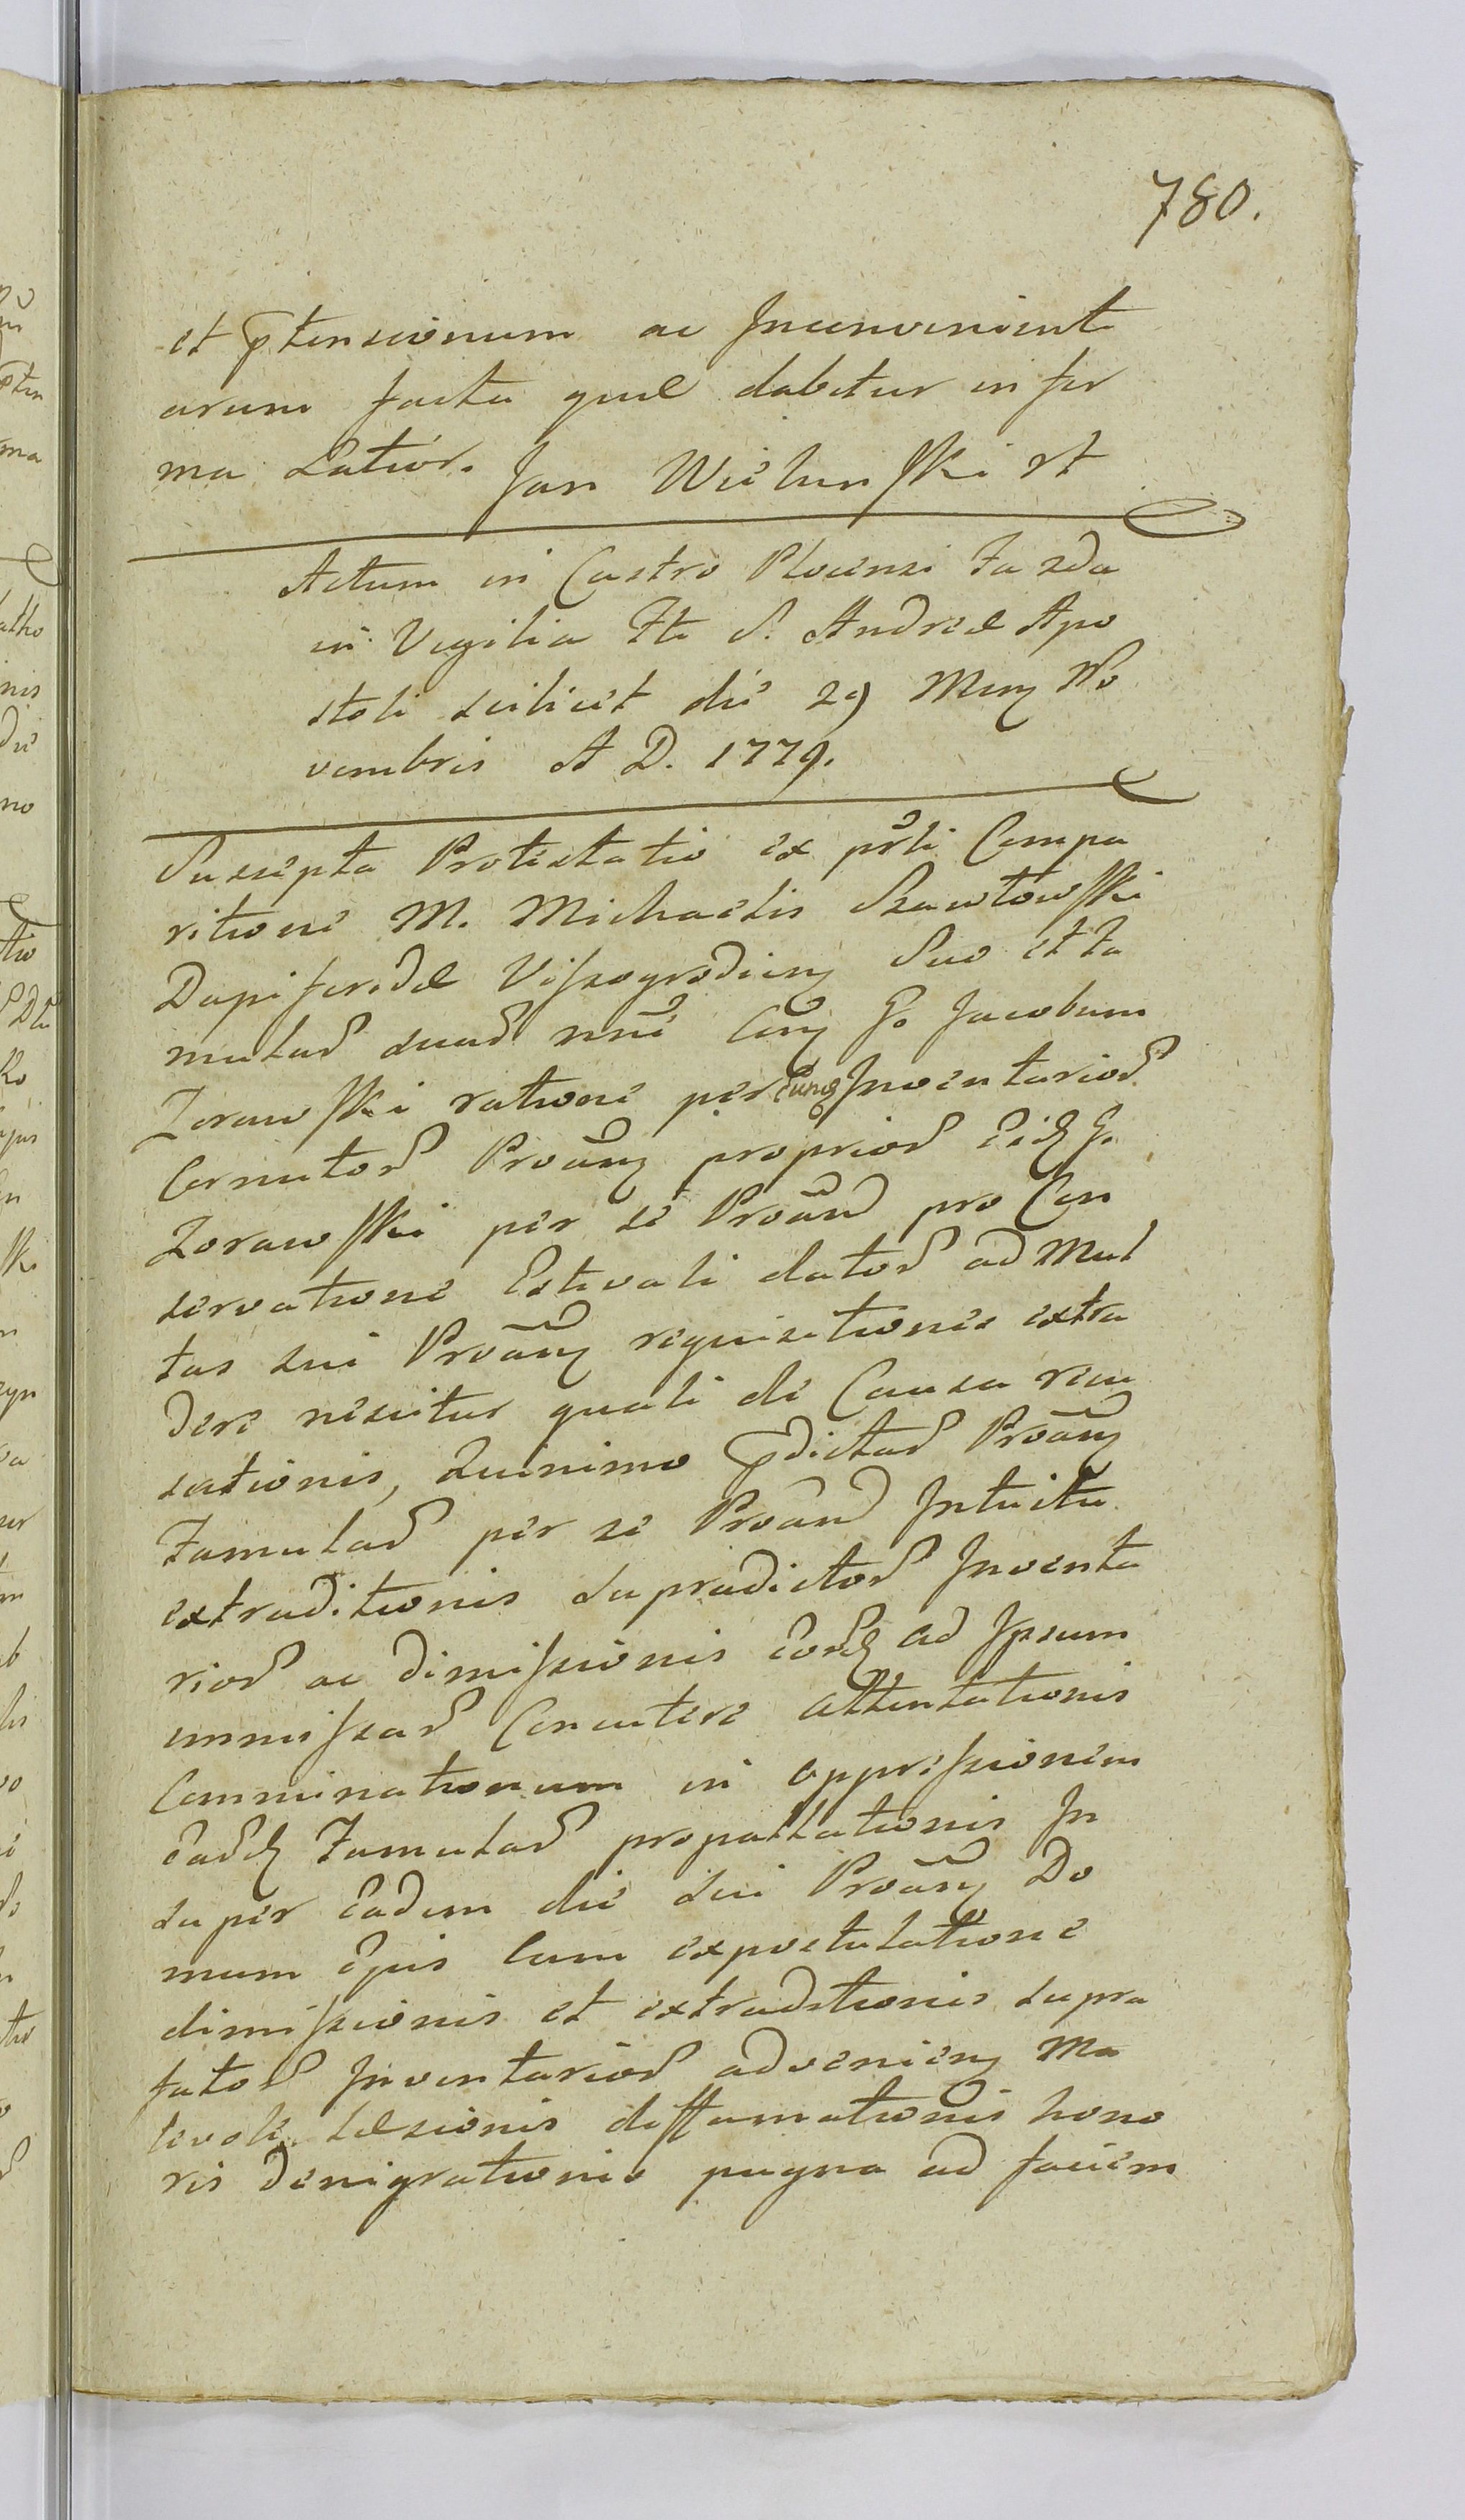 780.
et p̄tensionum ac Inconvenienti
arum facta quæ dabitur in for
ma Latior. Jan Wieluński rt
Actum in Castro Plocensi Fa 2da
in Vigilia Fti S. Andreæ Apo
stoli scilicet die 29 Mens No
vembris A D. 1779.
Suscepta Protestatio ex prsli Compa
ritione M. Michaelis Szawłowski
Dapiferidæ Vissogrodien Suo et fa
mulaꝝ suaꝝ nnē Con G. Jacobum
Zorawski ratione per eung Inventarioꝝ
Cornutoꝝ Proān proprioꝝ Eidem G.
Zorawski per se Proānd pro Con
servatione Estivali datoꝝ ad Mul
tas sui Proān requisitiones extra
dere nescitur quali de Causa recu
sationis, Quinimo p̄dictaꝝ Proān
Famulaꝝ per se Proānd Intuitu
extraditionis supradictoꝝ Inventa
rioꝝ ac dimissionis eorūd ad Ipsum
immissaꝝ Concutere attentationis
Comminationum in oppressionem
earūd Famulaꝝ propallationis In
super eadem die sui Proān Do
mum Ejus Cum expostulatione
dimissionis et extraditionis supra
fatoꝝ Inventarioꝝ advenien Ma
levole Læsionis diffamationis hono
ris denigrationis pugna ad faciem